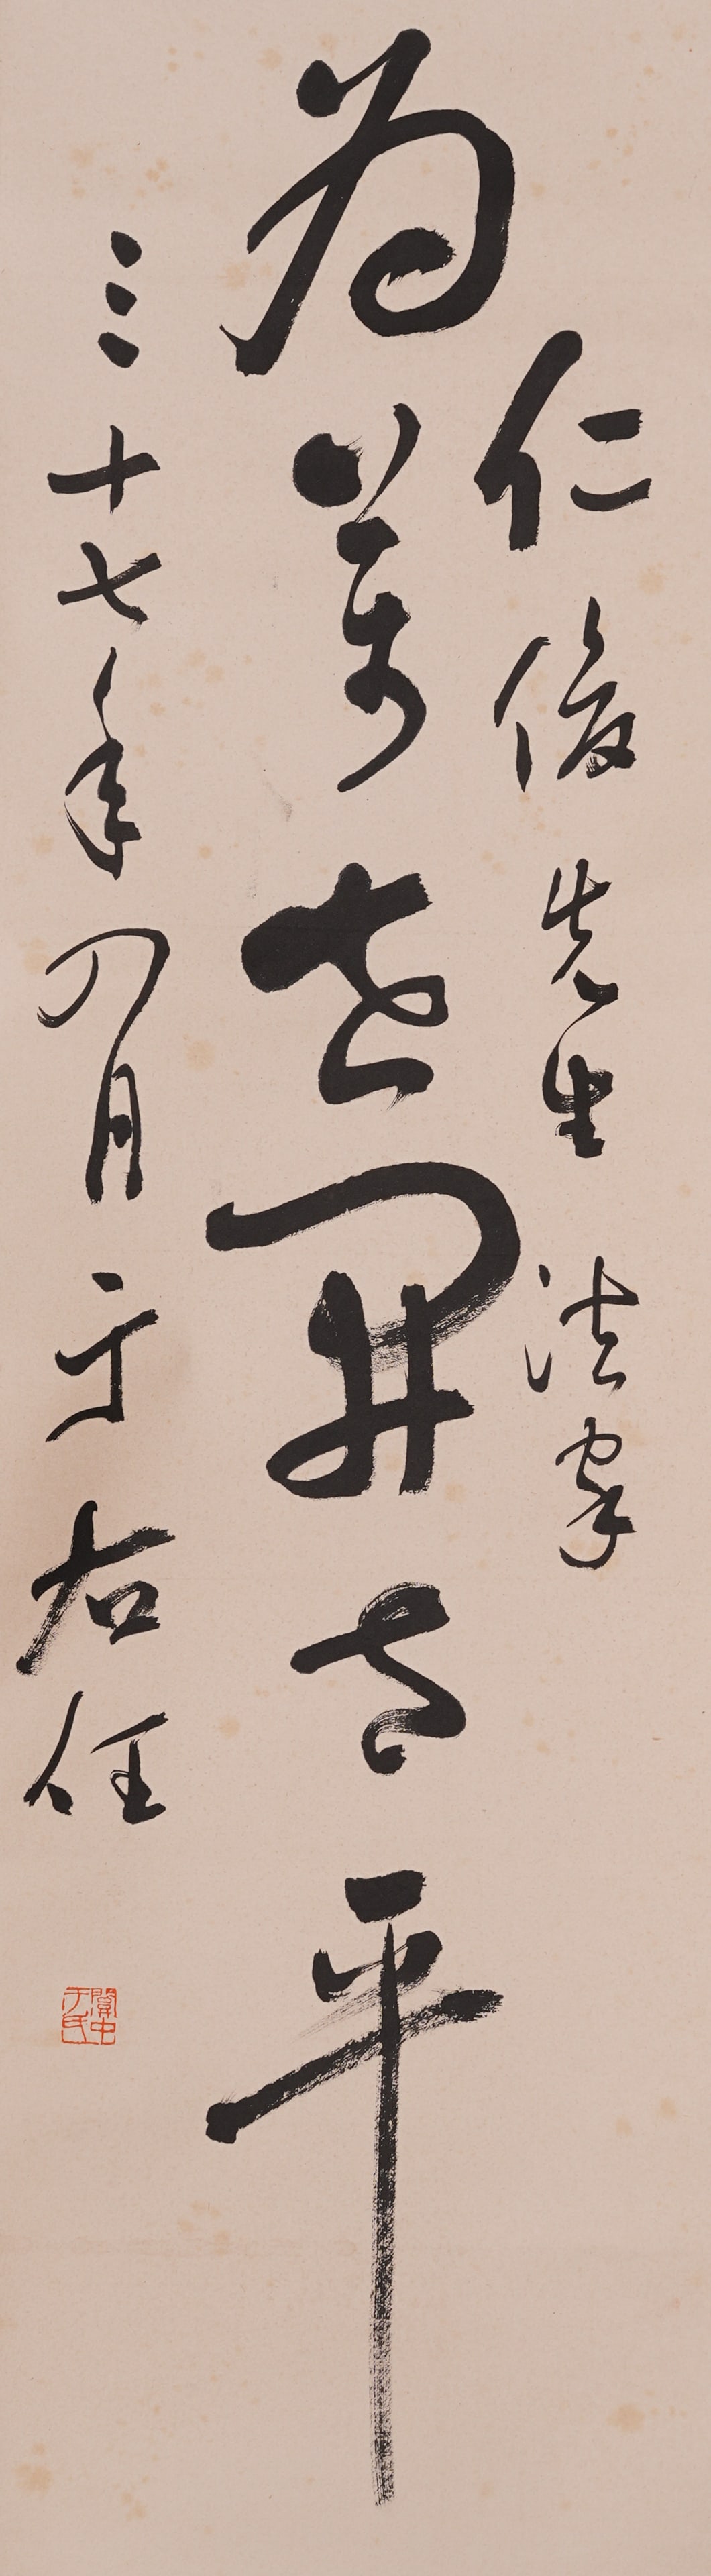 仁俊先生法家
為萬世開太平
三十七年四月于右任
關中于氏